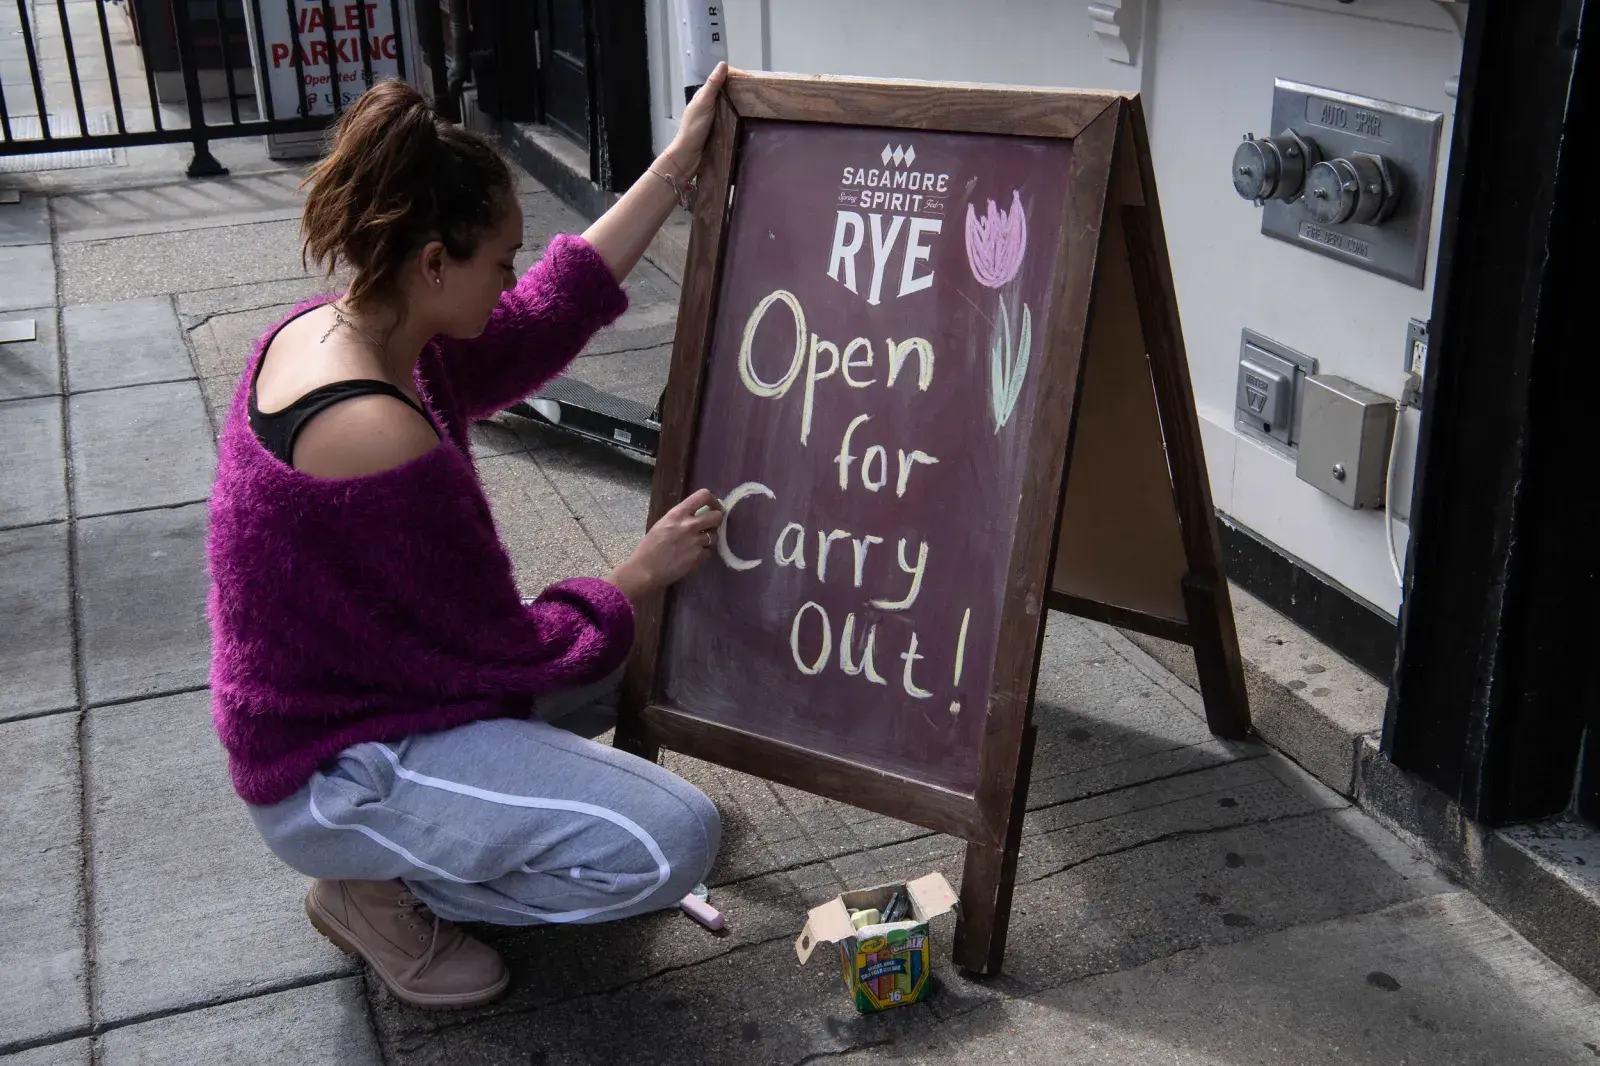 VALET
PARKING
Operated by
BIR
SAGAMORE
Spring SPIRIT Fed
RYE
Open
for
Carry
Out!
AUTO. SPKR
FIRE DEPT CONN
Crayola
CHALK
16